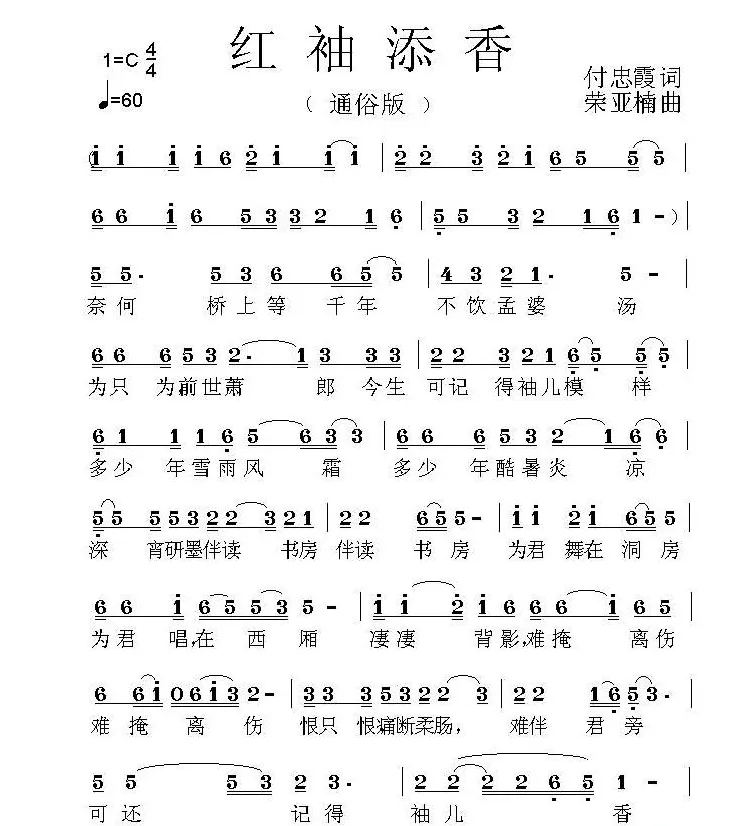 红袖添香
1=C 4/4
♩=60
（通俗版）
付忠霞词
荣亚楠曲
(i i i i 6 2 i i i | 2 2 3 2 i 6 5 5 5 |
6 6 i 6 5 3 3 2 1 6 | 5 5 3 2 1 6 1 - ) |
5 5 · 5 3 6 6 5 5 | 4 3 2 1 · 5 - |
奈何 桥上等 千年 不饮孟婆 汤
6 6 6 5 3 2 · 1 3 3 3 | 2 2 3 2 1 6 5 5 |
为只 为前世萧 郎 今生 可记 得袖儿模 样
6 1 1 1 6 5 6 3 3 | 6 6 6 5 3 2 1 6 6 |
多少 年雪雨风 霜 多少 年酷暑炎 凉
5 5 5 5 3 2 2 3 2 1 | 2 2 6 5 5 - | i i 2 i 6 5 5 |
深 宵研墨伴读 书房 伴读 书房 为君 舞在 洞房
6 6 i 6 5 5 3 5 - | i i i 2 i 6 6 6 i 6 5 |
为君 唱,在 西 厢 凄凄 背影,难掩 离伤
6 6 i 0 6 i 3 2 - | 3 3 3 5 3 2 2 3 2 2 1 6 5 3 · |
难掩 离伤 恨只 恨痛断柔肠， 难伴 君旁
5 5 5 3 2 3 · | 2 2 2 2 6 5 1 - |
可还 记得 袖儿 香